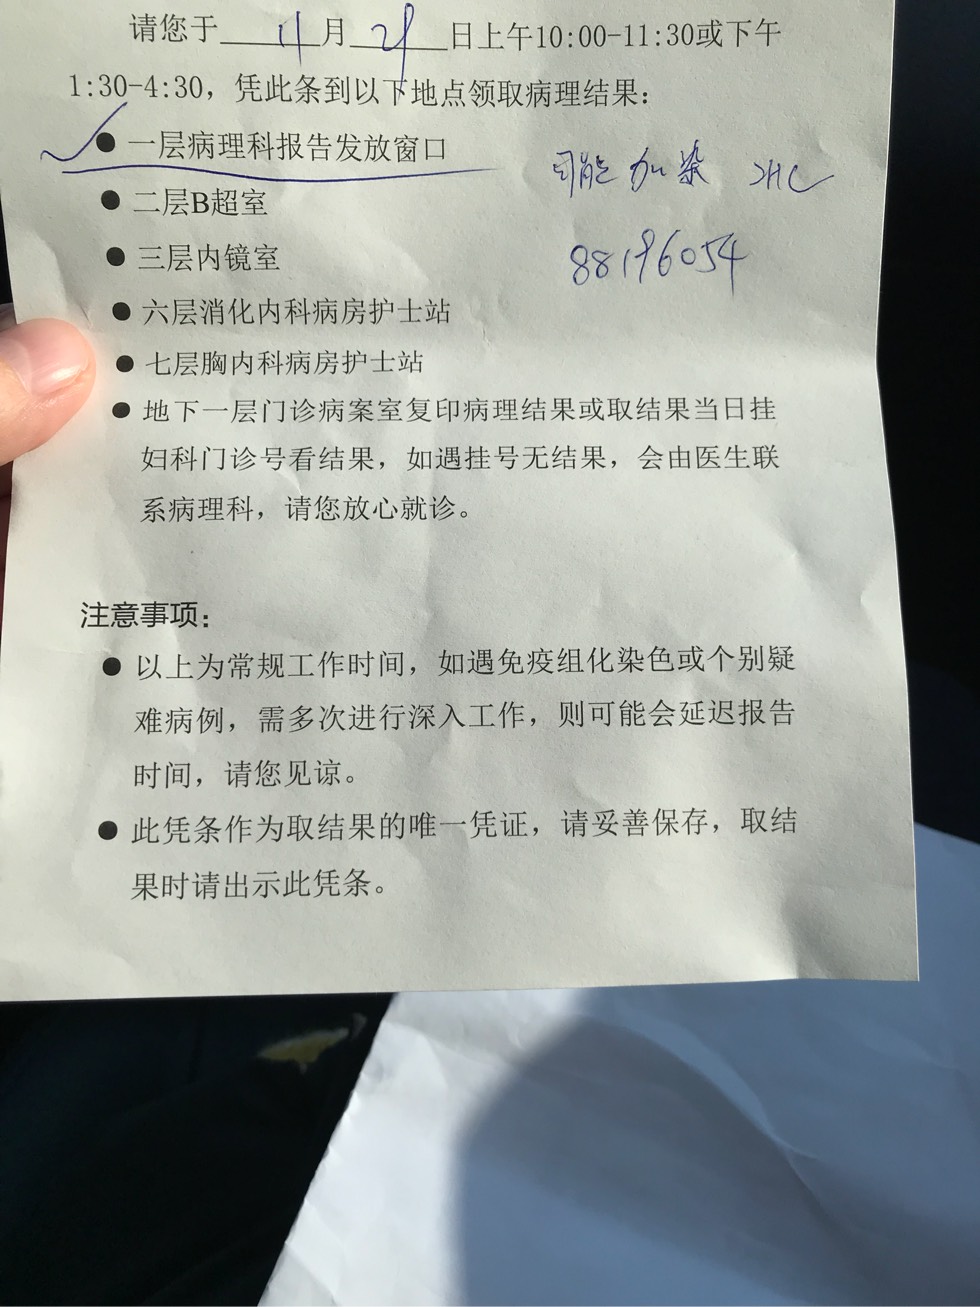 请您于 11 月 21 日上午10:00-11:30或下午
1:30-4:30，凭此条到以下地点领取病理结果：
● 一层病理科报告发放窗口
可能加染 IHC
● 二层B超室
88196054
● 三层内镜室
● 六层消化内科病房护士站
● 七层胸内科病房护士站
● 地下一层门诊病案室复印病理结果或取结果当日挂
妇科门诊号看结果，如遇挂号无结果，会由医生联
系病理科，请您放心就诊。
注意事项：
● 以上为常规工作时间，如遇免疫组化染色或个别疑
难病例，需多次进行深入工作，则可能会延迟报告
时间，请您见谅。
● 此凭条作为取结果的唯一凭证，请妥善保存，取结
果时请出示此凭条。